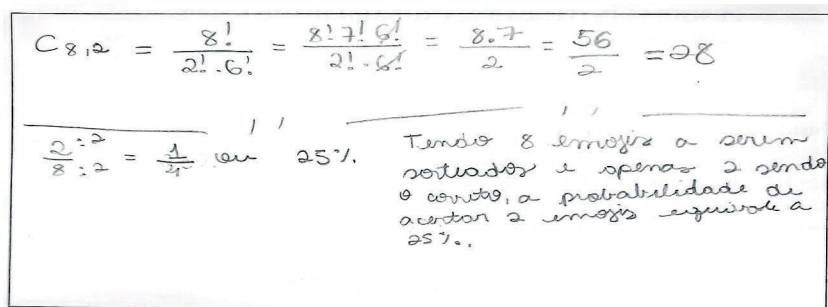 C 8,2 = 8! / 2! . 6! = 8! 7! 6! / 2! . 6! = 8.7 / 2 = 56 / 2 = 28
2 :2 / 8 :2 = 1 / 4 ou 25%.
Tendo 8 emojis a serem
sorteados e apenas 2 sendo
o correto, a probabilidade de
acertar 2 emojis equivale a
25%.